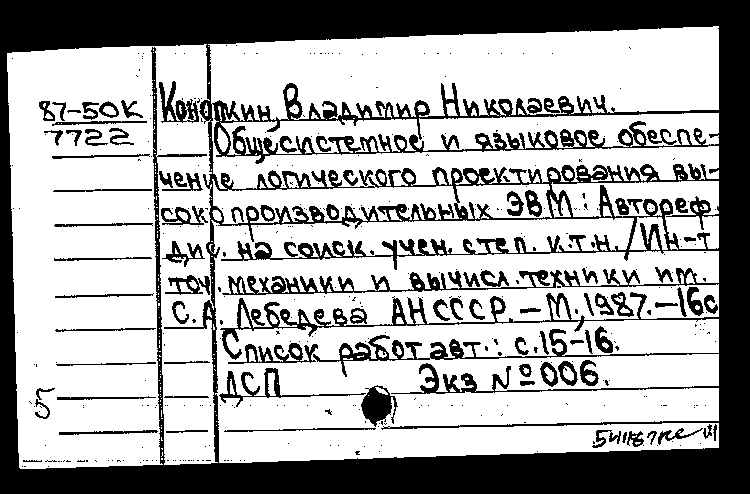 87-50К Конопкин, Владимир Николаевич.
7722 Общесистемное и языковое обеспе-
чение логического проектирования вы-
сокопроизводительных ЭВМ: Автореф.
дис. на соиск. учен. степ. к.т.н. /Ин-т
точ. механики и вычисл. техники им.
С.А. Лебедева АН СССР. – М., 1987. – 16с
Список работ авт.: с.15-16.
ДСП Экз № 006.